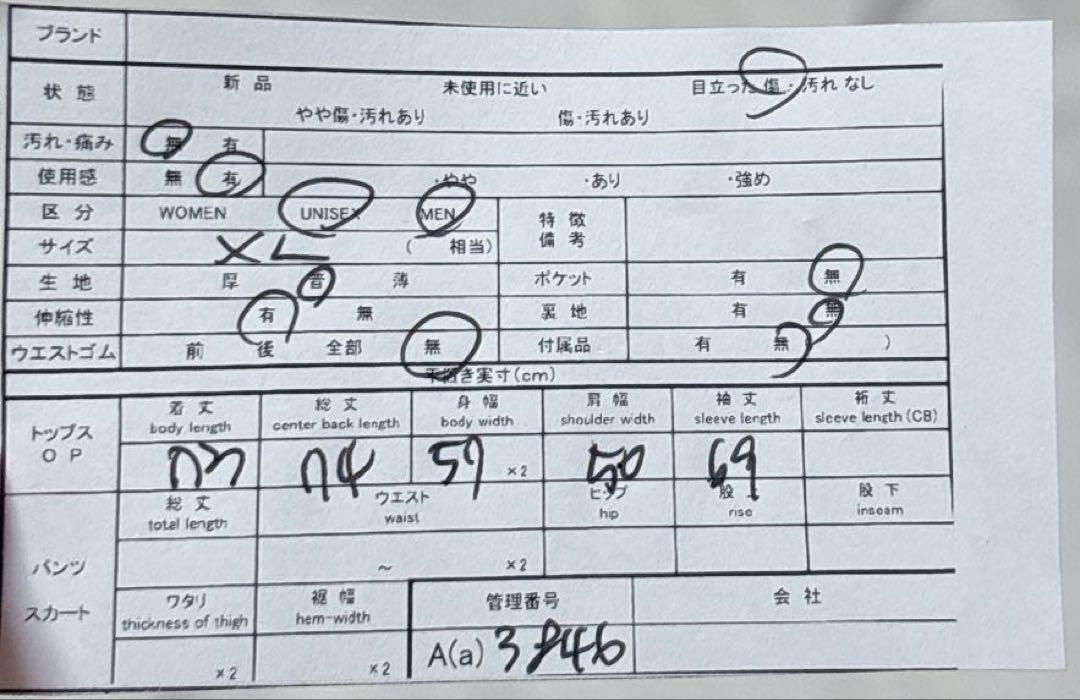 ブランド
状態 新品 未使用に近い 目立った傷・汚れなし
やや傷・汚れあり 傷・汚れあり
汚れ・痛み 無 有
使用感 無 有 ・やや ・あり ・強め
区分 WOMEN UNISEX MEN 特徴
備考
サイズ XL ( 相当)
生地 厚 普 薄 ポケット 有 無
伸縮性 有 無 裏地 有 無
ウエストゴム 前 後 全部 無 付属品 有 無( )
平置き実寸(cm)
トップス
OP
着丈 総丈 身幅 肩幅 袖丈 裄丈
body length center back length body width shoulder width sleeve length sleeve length (CB)
73 74 57 ×2 50 69
パンツ
スカート
総丈 ウエスト ヒップ 股 股下
total length waist hip rise inseam
~ ×2
ワタリ 裾幅 管理番号 会社
thickness of thigh hem-width
×2 ×2 A(a) 3846